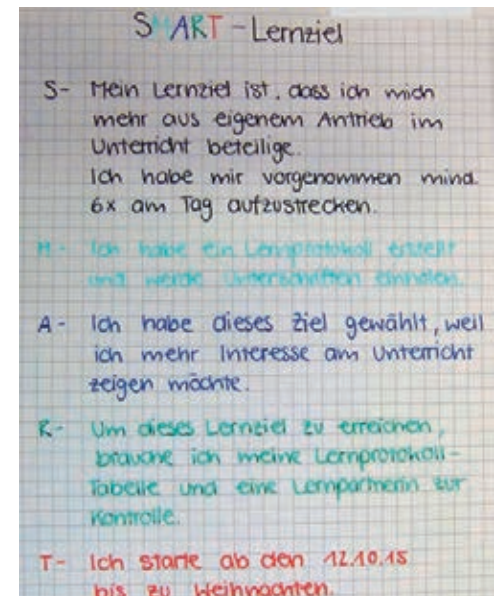 SMART - Lernziel
S- Mein Lernziel ist, dass ich mich
mehr aus eigenem Antrieb im
Unterricht beteilige.
Ich habe mir vorgenommen mind.
6x am Tag aufzustrecken.
M- Ich habe ein Lernprotokoll erstellt
und werde Unterschriften einholen.
A- Ich habe dieses Ziel gewählt, weil
ich mehr Interesse am Unterricht
zeigen möchte.
R- Um dieses Lernziel zu erreichen,
brauche ich meine Lernprotokoll-
Tabelle und eine Lernpartnerin zur
Kontrolle.
T- Ich starte ab den 12.10.15
bis zu Weihnachten.